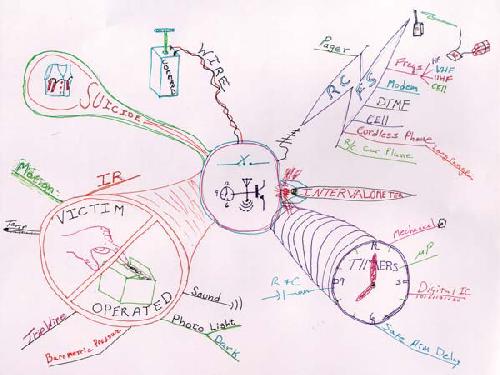 WIRE
SUICIDE
X.
Pager
RC
Freqs
HF
VHF
UHF
CELL
Modem
DTMF
CELL
Cordless Phone
Long Range
R/C Car Plane
INTERVALOMETER
IR
Motion
VICTIM
OPERATED
Sound
Photo Light
Dark
Barometric Pressure
TIMERS
12
3
6
9
Mechanical
µP
Digital IC
R + C
Safe Arm Delay